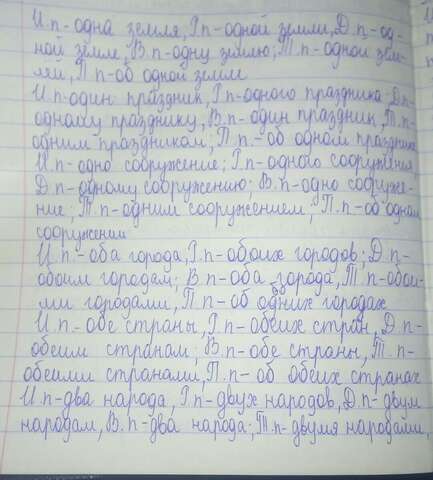 И.п-одна земля, Р.п-одной земли, Д.п-од-
ной земле, В.п-одну землю; Т.п-одной зем-
лёй, П.п-об одной земле
И.п-один праздник, Р.п-одного праздника, Д.п-
одному празднику, В.п-один праздник, Т.п-
одним праздником; П.п-об одном празднике
И.п-одно сооружение; Р.п-одного сооружения,
Д.п-одному сооружению; В.п-одно сооруже-
ние; Т.п-одним сооружением; П.п-об одном
сооружении
И.п-оба города, Р.п-обоих городов; Д.п-
обоим городам; В.п-оба города, Т.п-обои-
ми городами, П.п-об городах
И.п.-обе страны, Р.п-обеих стран, Д.п-
обеим странам; В.п-обе страны, Т.п-
обеими странами, П.п-об обеих странах
И.п-два народа, Р.п-двух народов, Д.п-двум
народам, В.п-два народа; Т.п-двумя народами,